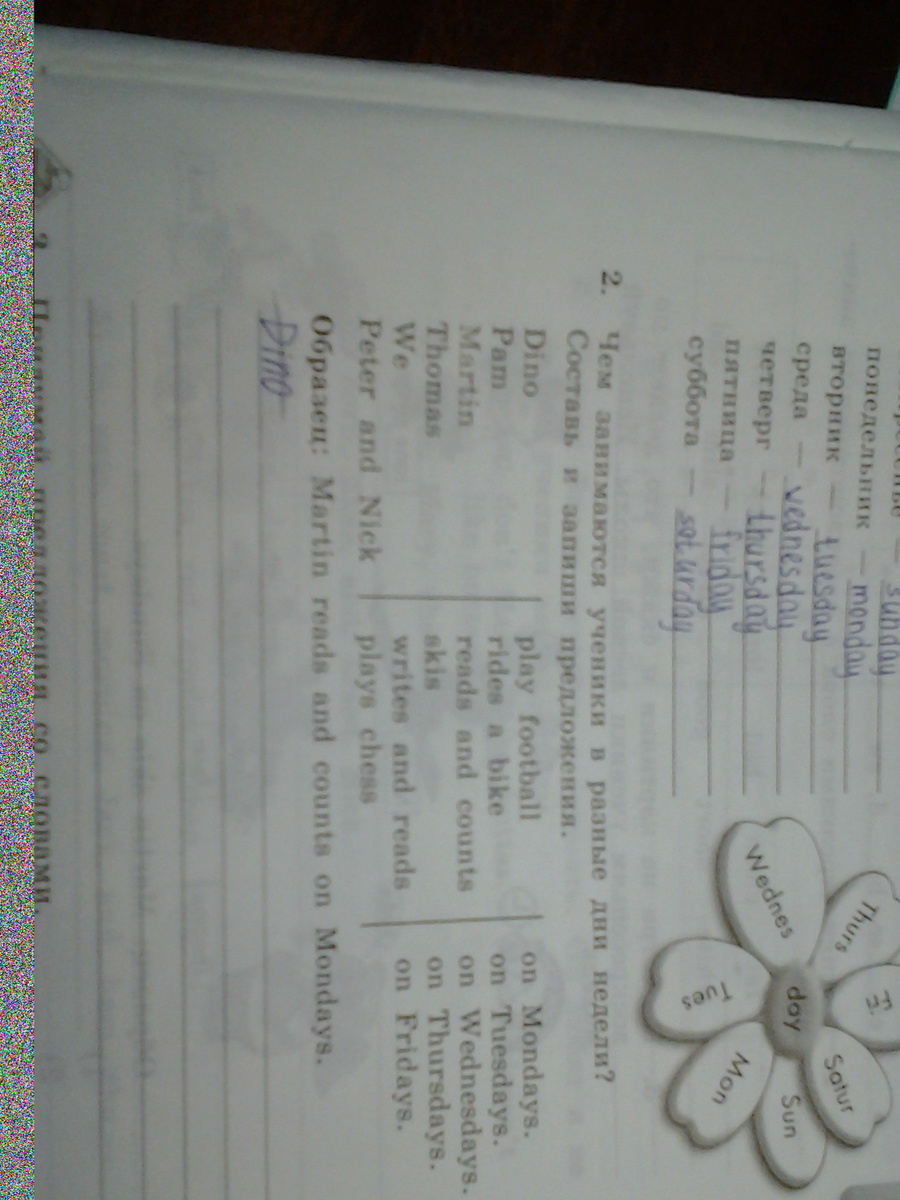 — sunday
понедельник — monday
вторник — tuesday
среда — wednesday
четверг — thursday
пятница — friday
суббота — saturday
Thurs
Wednes
Tues
Mon
Sun
Satur
Fri
day
2. Чем занимаются ученики в разные дни недели?
Составь и запиши предложения.
Dino play football on Mondays.
Pam rides a bike on Tuesdays.
Martin reads and counts on Wednesdays.
Thomas skis on Thursdays.
We writes and reads on Fridays.
Peter and Nick plays chess
Образец: Martin reads and counts on Mondays.
Dino
предложения со словами.